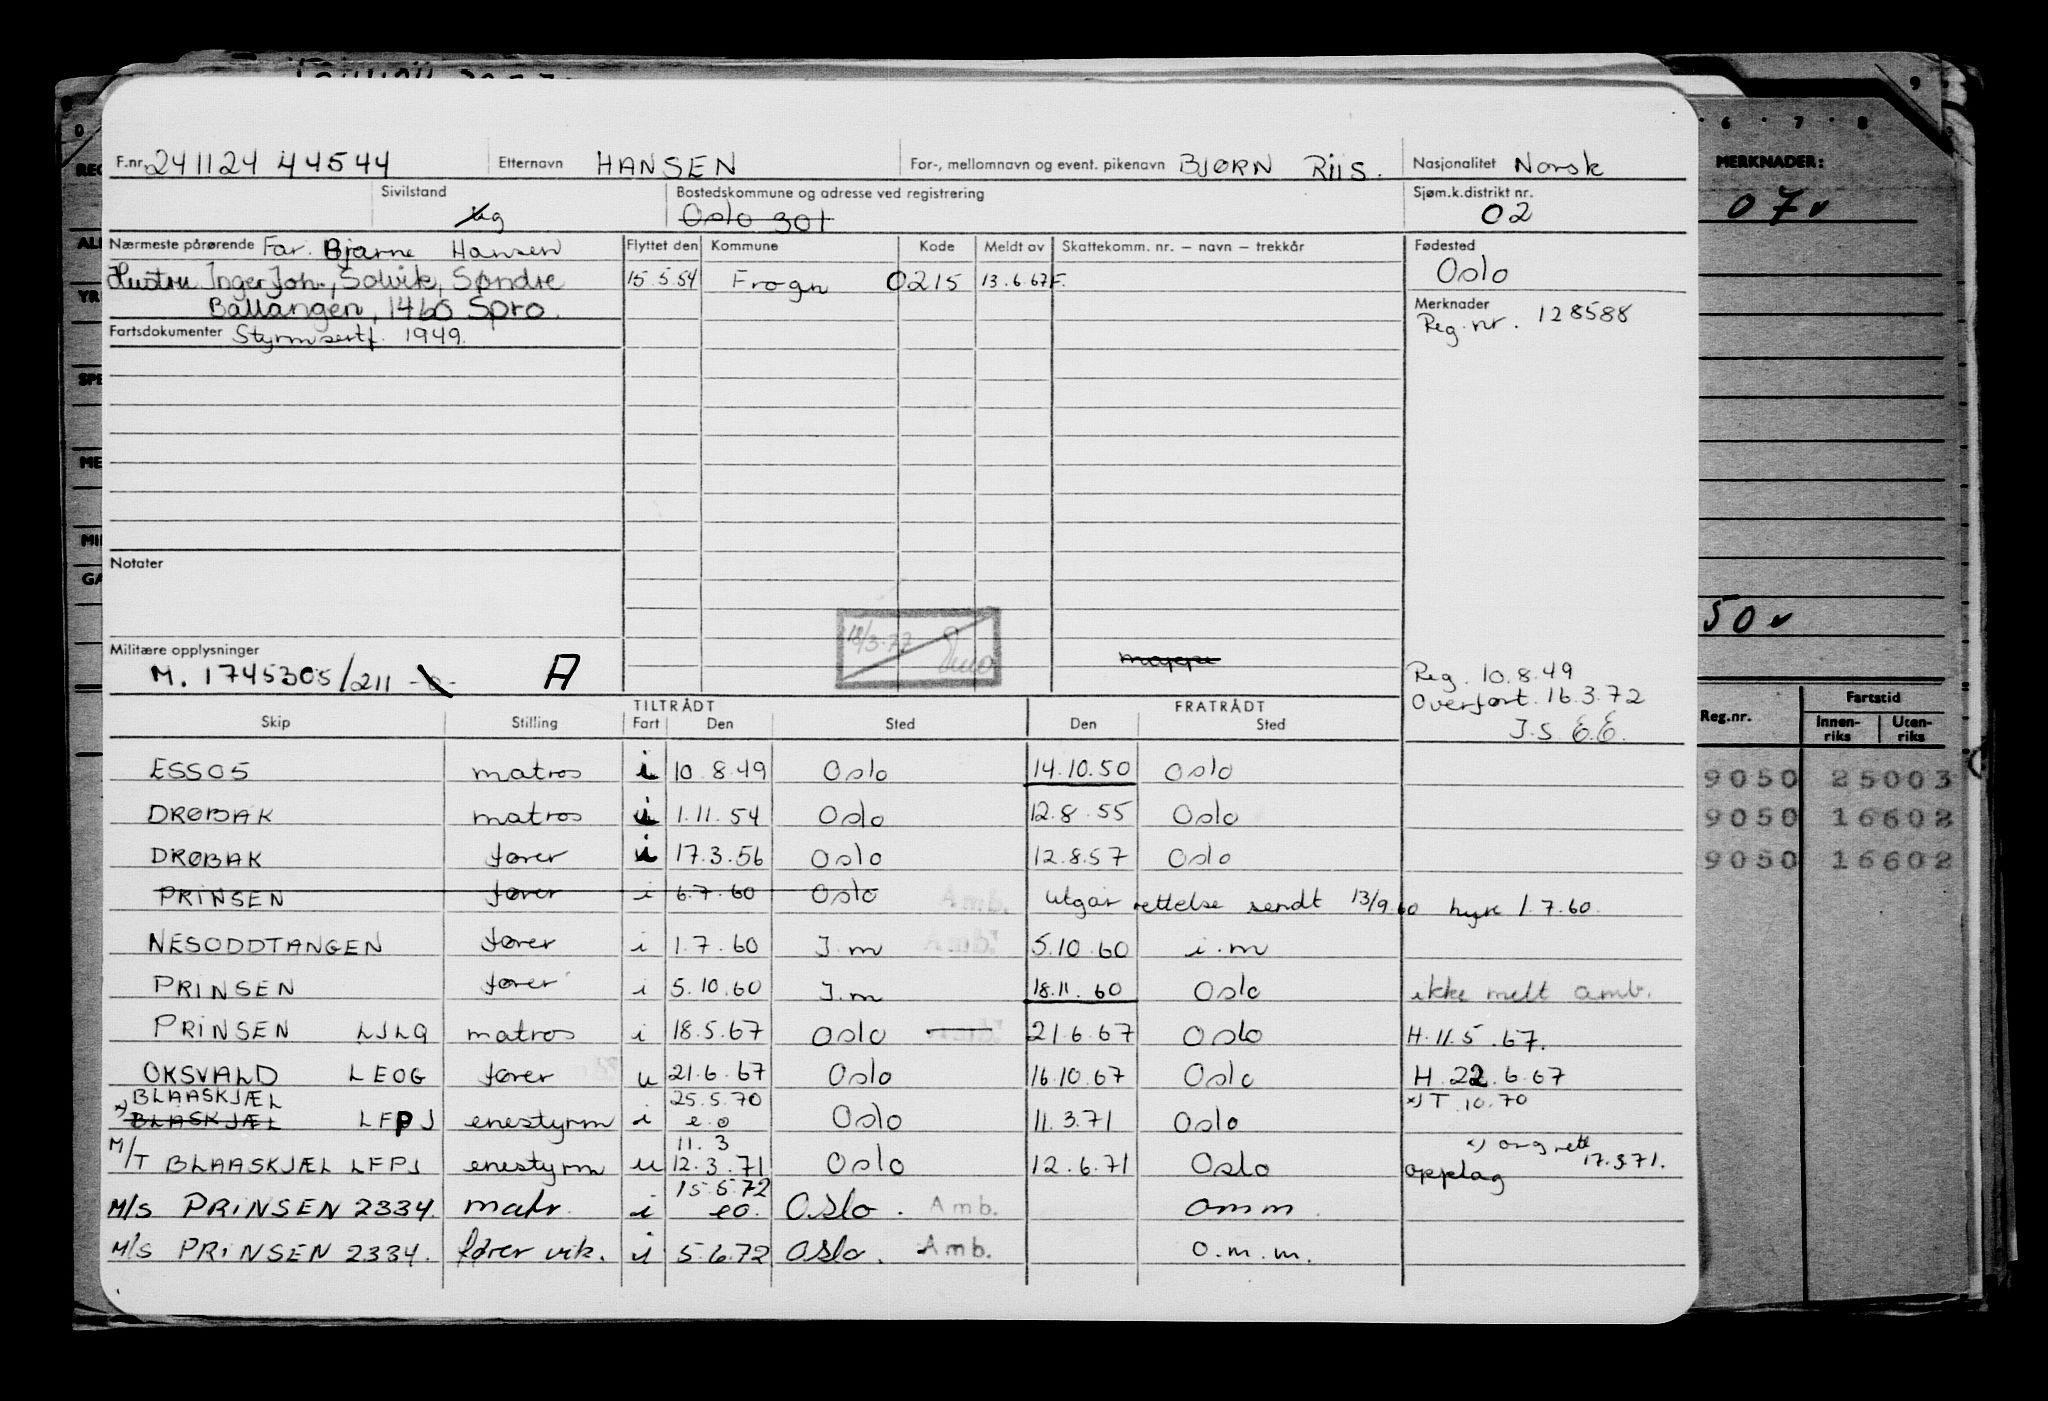 F.nr. 241124 44544 Etternavn HANSEN For-, mellomnavn og event. pikenavn BJØRN RIIS. Nasjonalitet Norsk
Sivilstand ug Bostedskommune og adresse ved registrering Oslo 301 Sjøm.k.distrikt nr. 02
Nærmeste pårørende Far. Bjarne Hansen Flyttet den Kommune Kode Meldt av Skattekomm. nr. – navn – trekkår Fødested Oslo
Hustru Inger Joh., Solvik, Søndre 15.5.54 Frogn 0215 13.6.67 F.
Ballangen, 1460 Spro. Merknader Reg. nr. 128588
Fartsdokumenter Styrmsertf. 1949.
Notater
18/3.77
Militære opplysninger
M. 1745305/211 A mappe
Reg. 10.8.49
Overført. 16.3.72
J.S. E.E.
TILTRÅDT FRATRÅDT
Skip Stilling Fart Den Sted Den Sted
ESSO5 matros i 10.8.49 Oslo 14.10.50 Oslo
DRØBAK matros i 1.11.54 Oslo 12.8.55 Oslo
DRØBAK fører i 17.3.56 Oslo 12.8.57 Oslo
PRINSEN fører i 6.7.60 Oslo Amb. utgår rettelse sendt 13/9.60 hyre 1.7.60.
NESODDTANGEN fører i 1.7.60 I.m Amb. 5.10.60 i.m
PRINSEN fører i 5.10.60 I.m 18.11.60 Oslo ikke melt amb.
PRINSEN LJLQ matros i 18.5.67 Oslo 21.6.67 Oslo H.11.5.67.
OKSVALD LEOG fører u 21.6.67 Oslo 16.10.67 Oslo H.22.6.67
BLAASKJÆL 25.5.70 x) T 10.70
x) BLÅSKJÆL LFPJ enestyrm i e.o Oslo 11.3.71 Oslo
11.3 x) org rett 17.3.71.
M/T BLAASKJÆL LFPJ enestyrm u 12.3.71 Oslo 12.6.71 Oslo opplag
15.5.72
M/S PRINSEN 2334. matr. i eo. Oslo. Amb. omm.
M/S PRINSEN 2334. fører vik. i 5.6.72 Oslo. Amb. o.m.m.
0 6 7 8 9
MERKNADER:
07
50
Reg.nr. Fartstid
Innen-riks Uten-riks
9050 25003
9050 16602
9050 16602